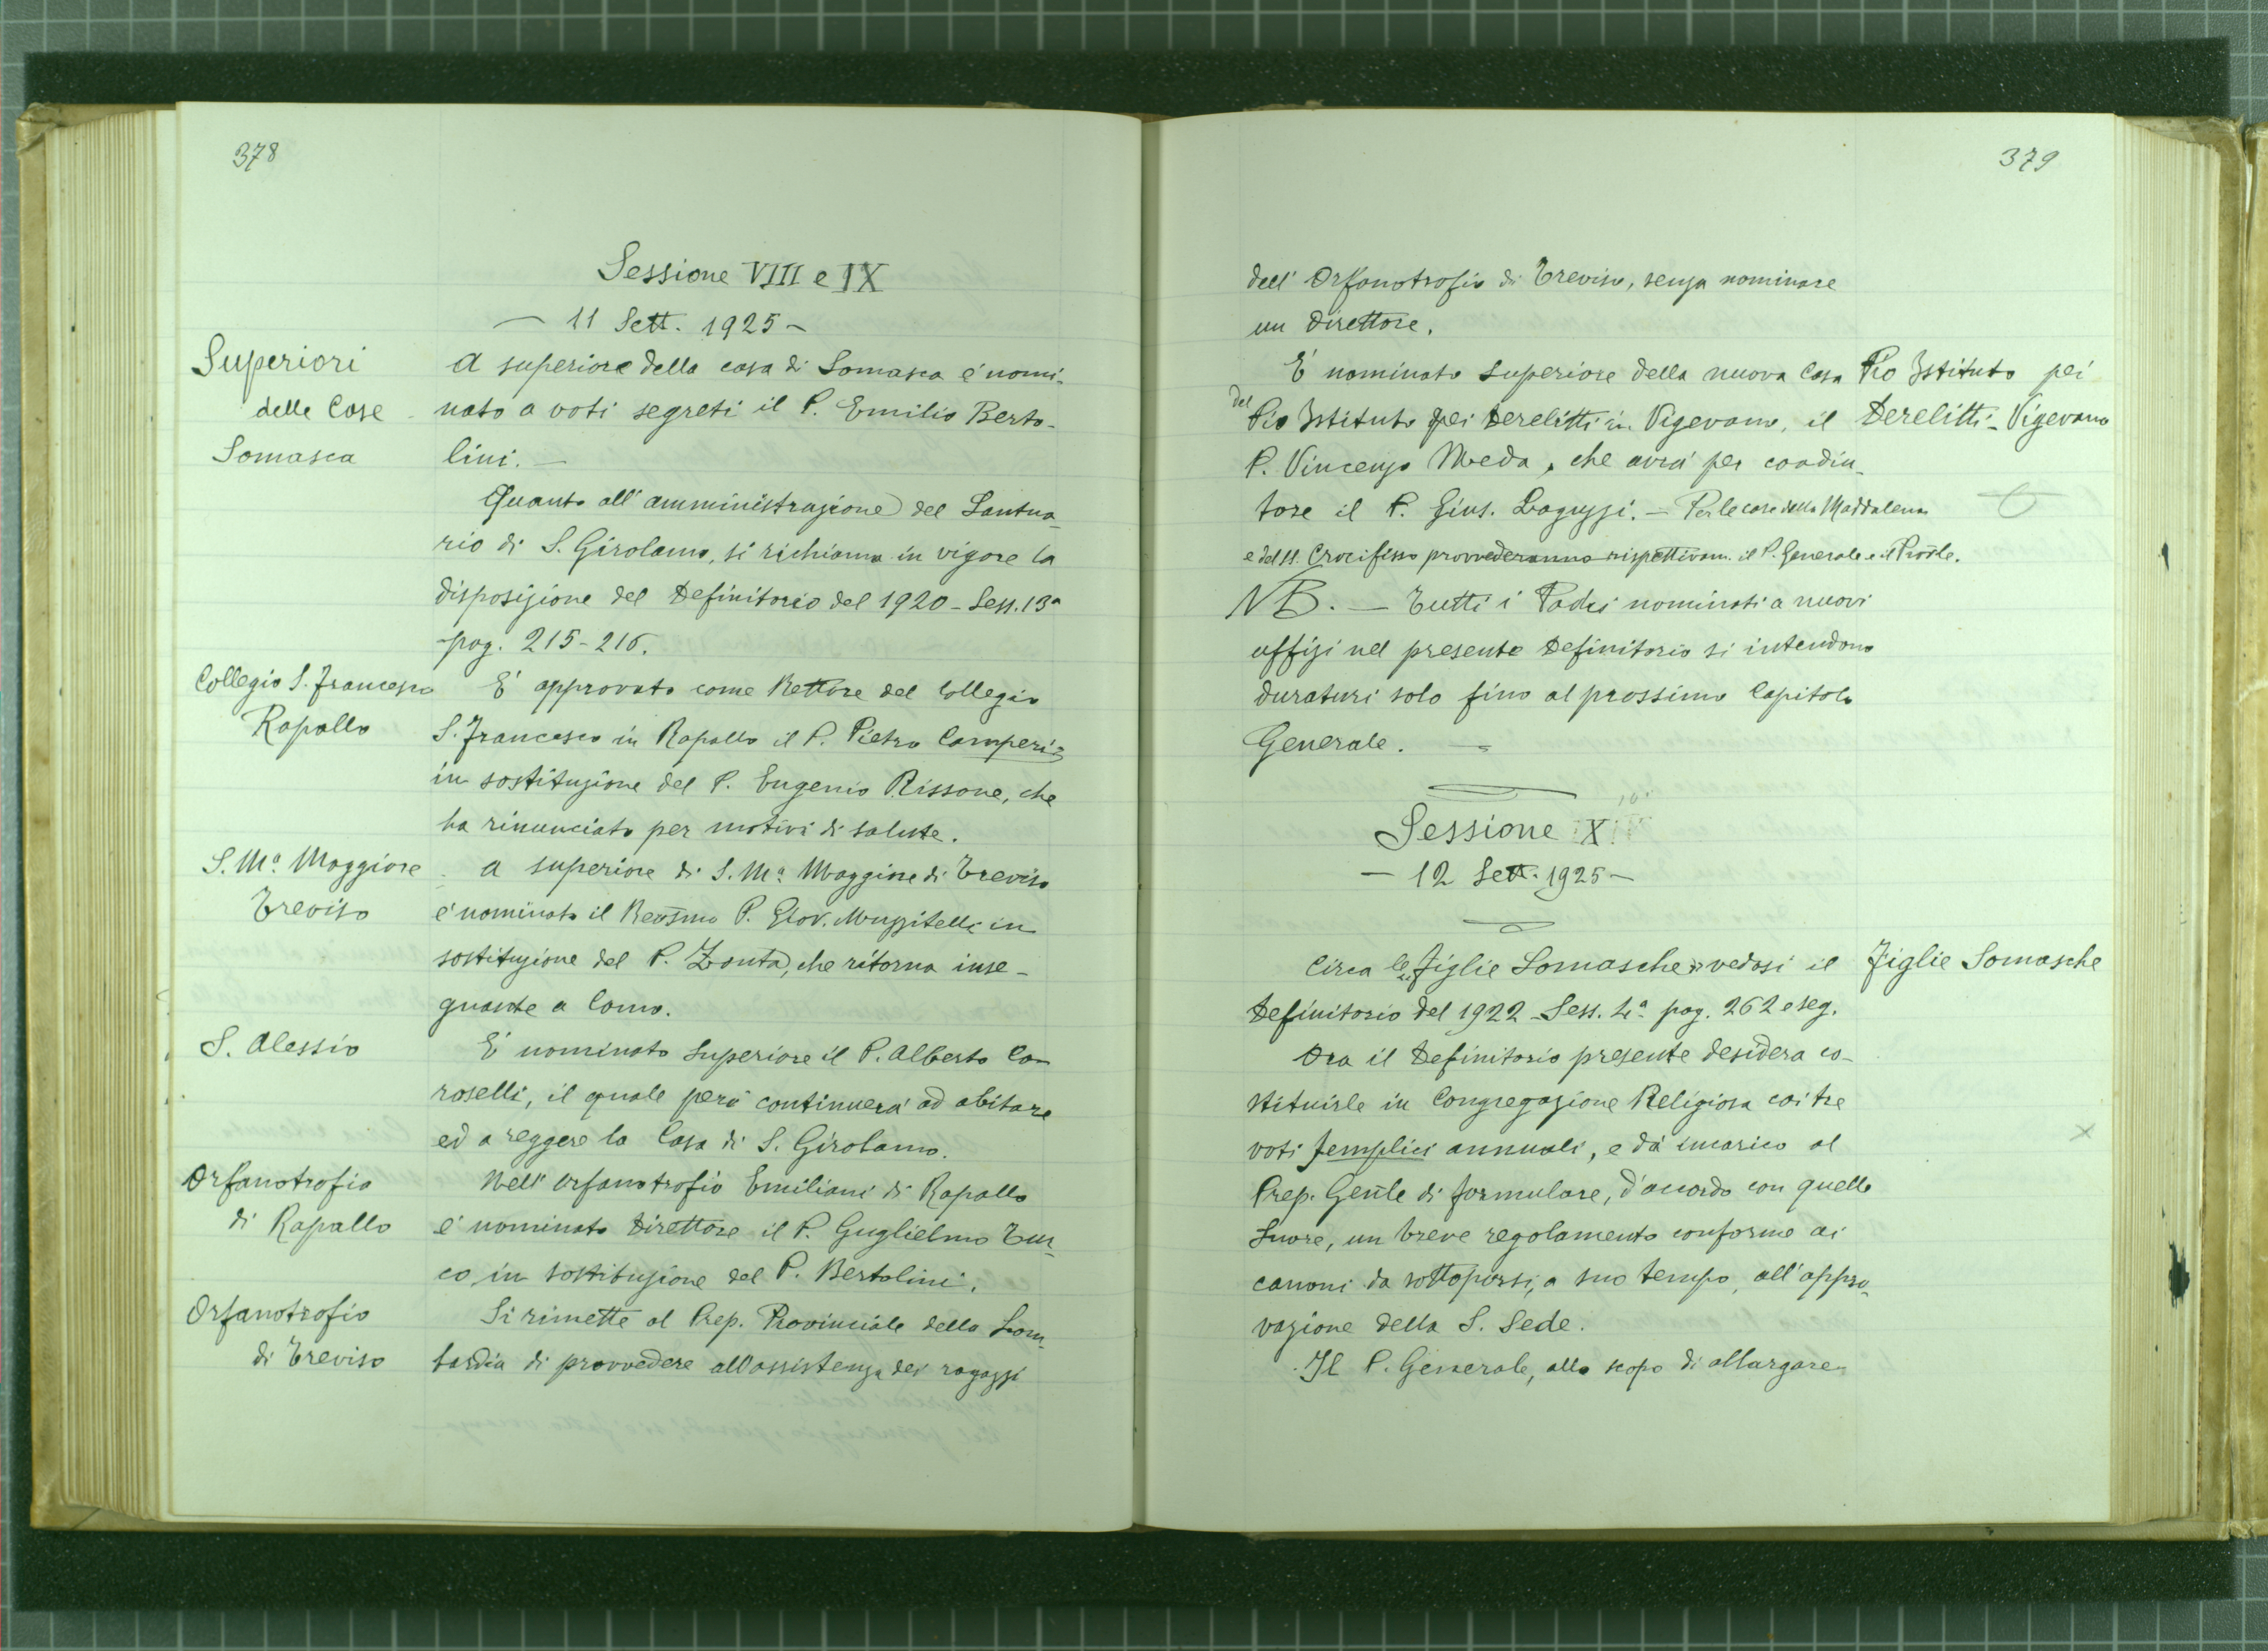 378
Sessione VIII e IX
— 11 Sett. 1925 —
Superiori
delle Case
Somasca
A superiore della casa di Somasca è nomi-
nato a voti segreti il P. Emilio Berto-
lini. —
Quanto all'amministrazione del Santua-
rio di S. Girolamo, si richiama in vigore la
disposizione del Definitorio del 1920 - Sess. 13ª
pag. 215-216.
Collegio S. Francesco
Rapallo
E' approvato come Rettore del Collegio
S. Francesco in Rapallo il P. Pietro Camperi
in sostituzione del P. Eugenio Rissone, che
ha rinunciato per motivi di salute.
S. Mª Maggiore
Treviso
A superiore di S. Mª Maggiore di Treviso
è nominato il Revsmo P. Giov. Muzzitelli in
sostituzione del P. Zonta, che ritorna inse-
gnante a Como.
S. Alessio
E' nominato Superiore il P. Alberto Ca-
roselli, il quale però continuerà ad abitare
ed a reggere la Casa di S. Girolamo.
Orfanotrofio
di Rapallo
Nell' Orfanotrofio Emiliani di Rapallo
è nominato Direttore il P. Guglielmo Tur-
co in sostituzione del P. Bertolini.
Orfanotrofio
di Treviso
Si rimette al Prep. Provinciale della Lom-
bardia di provvedere all'assistenza dei ragazzi
379
dell' Orfanotrofio di Treviso, senza nominare
un Direttore.
E' nominato Superiore della nuova Casa
del
Pio Istituto pei Derelitti in Vigevano, il
P. Vincenzo Meda, che avrà per coadiu-
tore il P. Gius. Baguzzi. — Per le case della Maddalena
e del SS. Crocifisso provvederanno rispettivam. il P. Generale e il Provle.
Pio Istituto pei
Derelitti - Vigevano
NB. — Tutti i Padri nominati a nuovi
uffizi nel presente Definitorio si intendono
duraturi solo fino al prossimo Capitolo
Generale. —
Sessione X
— 12 Sett. 1925 —
Circa le Figlie Somasche vedasi il
Figlie Somasche
Definitorio del 1922 - Sess. 4ª pag. 262 e seg.
Ora il Definitorio presente desidera co-
stituirle in Congregazione Religiosa coi tre
voti semplici annuali, e dà incarico al
Prep. Genle di formulare, d'accordo con quelle
Suore, un breve regolamento conforme ai
canoni da sottoporsi, a suo tempo, all'appro-
vazione della S. Sede.
Il P. Generale, allo scopo di allargare